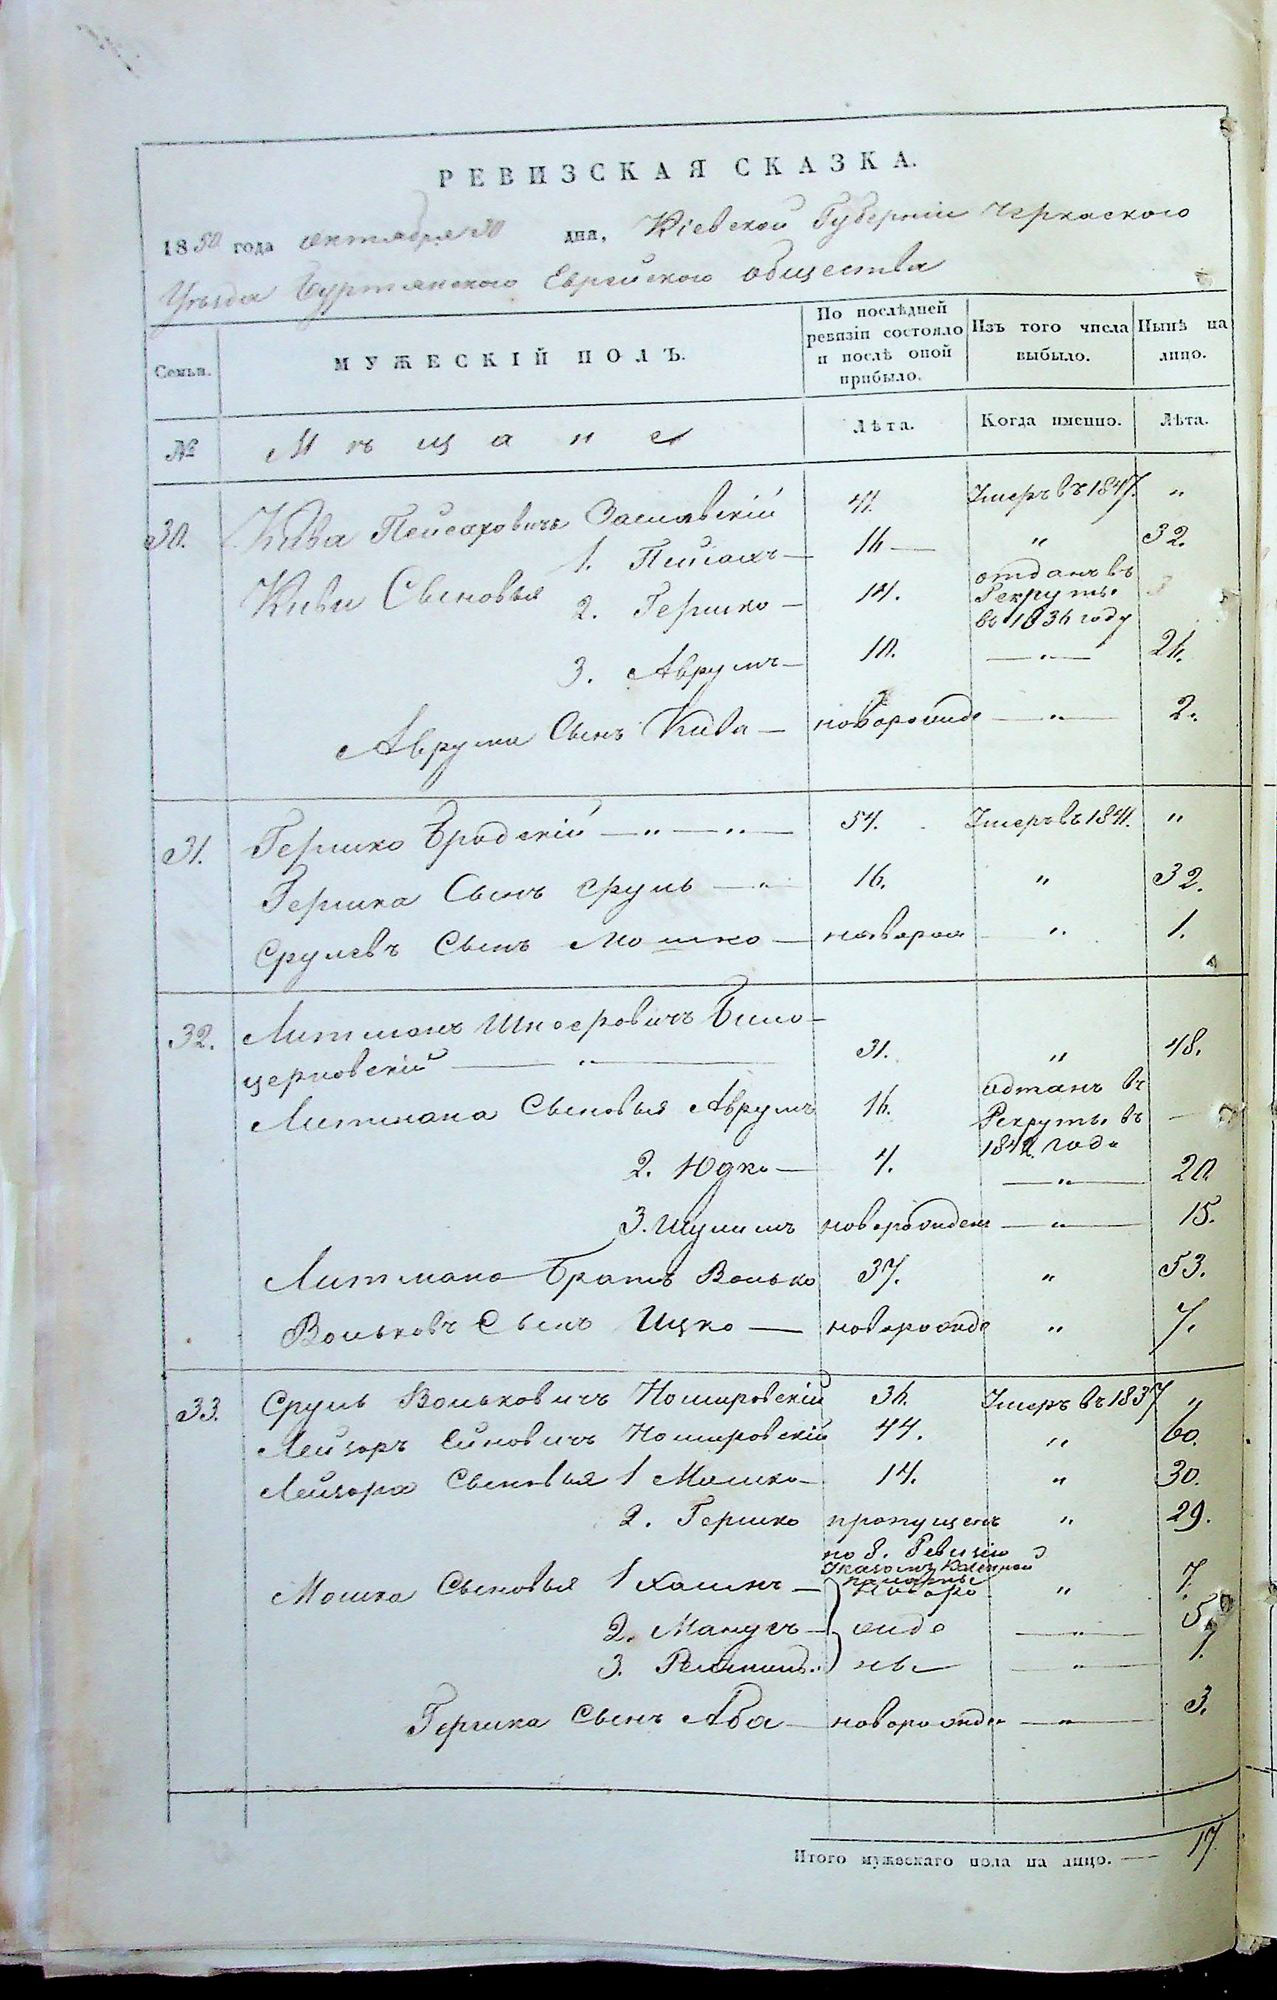 РЕВИЗСКАЯ СКАЗКА.
1850 года октября 30 дня, Кіевской Губерніи Черкаского
Уѣзда Буртянского Еврейского общества
Семьи. МУЖЕСКІЙ ПОЛЪ. По послѣдней ревизіи состояло и послѣ оной прибыло. Изъ того числа выбыло. Нынѣ на лицо.
№ Мѣщане Лѣта. Когда именно. Лѣта.
30. Кива Пейсаховичъ Заславскій 41. Умеръ въ 1847. "
Киви Сыновья 1. Пейсахъ — 16 — " 32.
2. Гершко — 14. отданъ въ Рекруты въ 1836 году
3. Аврумъ — 10. — " — 26.
Аврума Сынъ Кива — новорожде — " — 2.
31. Гершко Бродскій — " — " — 54. Умеръ въ 1841. "
Гершка Сынъ Сруль — " — 16. " 32.
Срулевъ Сынъ Мошко — новорож — " 1.
32. Литманъ Шнееровичъ Било-
церковскій — " — 31. " 48.
Литмана Сыновья Аврумъ 16. одтанъ въ Рекруты въ 184 года —
2. Юдко — 4. — " — 20
3. Шулимъ новорожден — " — 15.
Литмана Братъ Волько 37. " 53.
Вольковъ Сынъ Ицко — новорожде " 7.
33. Сруль Вольковичъ Пошировскій 36. Умеръ въ 1837 "
Лейзоръ Ейновичъ Пошировскій 44. " 60.
Лейзора Сыновья 1 Мошко — 14. " 30.
2. Гершко пропущенъ " 29.
по 8. Ревизіи
Указомъ Казенной
палаты
Мошка Сыновья 1 Хаимъ — новоро " 7.
2. Манусъ — жде — " — 5.
3. — ны — — " — 1.
Гершка Сынъ Аба — новорожде — " — 3.
Итого мужескаго пола на лицо. — 17